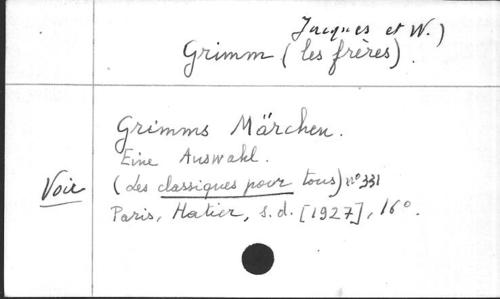 Jacques et W.)
Grimm (les frères).
Grimms Märchen.
Eine Auswahl.
Voir
(Les classiques pour tous) n° 331
Paris, Hatier, s.d. [1927], 16°.